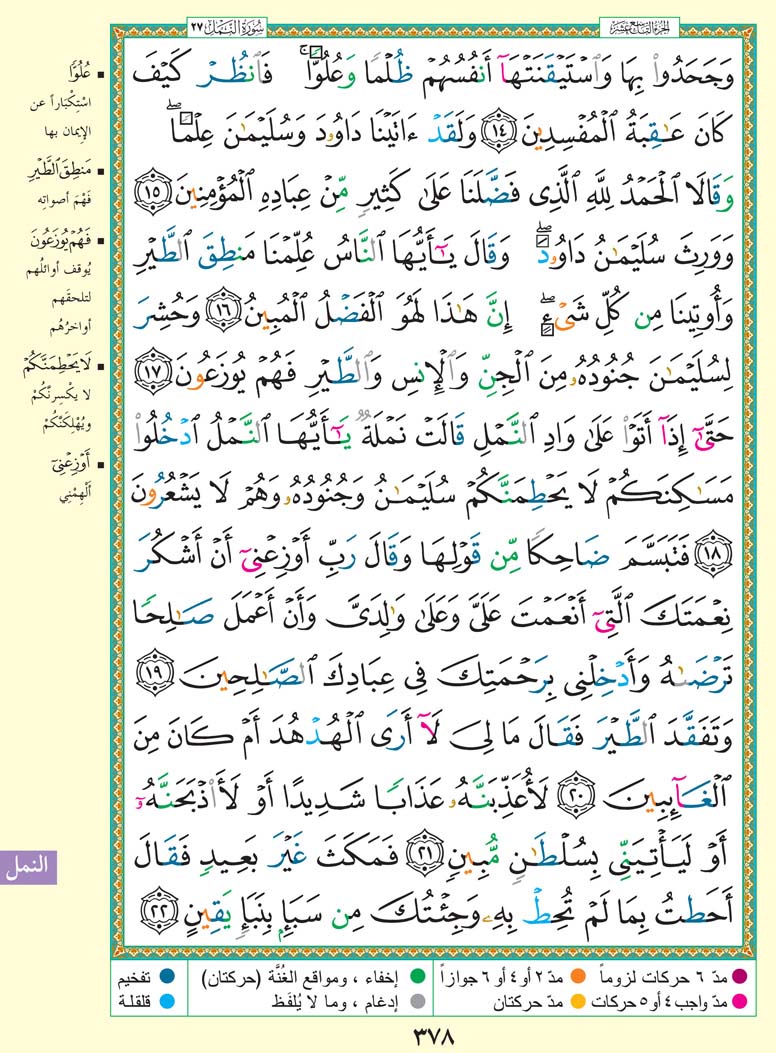 الجزء التاسع عشر
سورة النمل ٢٧
وَجَحَدُوا۟ بِهَا وَٱسْتَيْقَنَتْهَآ أَنفُسُهُمْ ظُلْمًا وَعُلُوًّا ۚ فَٱنظُرْ كَيْفَ
كَانَ عَـٰقِبَةُ ٱلْمُفْسِدِينَ ١٤ وَلَقَدْ ءَاتَيْنَا دَاوُۥدَ وَسُلَيْمَـٰنَ عِلْمًا ۖ
وَقَالَا ٱلْحَمْدُ لِلَّهِ ٱلَّذِى فَضَّلَنَا عَلَىٰ كَثِيرٍ مِّنْ عِبَادِهِ ٱلْمُؤْمِنِينَ ١٥
وَوَرِثَ سُلَيْمَـٰنُ دَاوُۥدَ ۖ وَقَالَ يَـٰٓأَيُّهَا ٱلنَّاسُ عُلِّمْنَا مَنطِقَ ٱلطَّيْرِ
وَأُوتِينَا مِن كُلِّ شَىْءٍ ۖ إِنَّ هَـٰذَا لَهُوَ ٱلْفَضْلُ ٱلْمُبِينُ ١٦ وَحُشِرَ
لِسُلَيْمَـٰنَ جُنُودُهُۥ مِنَ ٱلْجِنِّ وَٱلْإِنسِ وَٱلطَّيْرِ فَهُمْ يُوزَعُونَ ١٧
حَتَّىٰٓ إِذَآ أَتَوْا۟ عَلَىٰ وَادِ ٱلنَّمْلِ قَالَتْ نَمْلَةٌ يَـٰٓأَيُّهَا ٱلنَّمْلُ ٱدْخُلُوا۟
مَسَـٰكِنَكُمْ لَا يَحْطِمَنَّكُمْ سُلَيْمَـٰنُ وَجُنُودُهُۥ وَهُمْ لَا يَشْعُرُونَ
١٨ فَتَبَسَّمَ ضَاحِكًا مِّن قَوْلِهَا وَقَالَ رَبِّ أَوْزِعْنِىٓ أَنْ أَشْكُرَ
نِعْمَتَكَ ٱلَّتِىٓ أَنْعَمْتَ عَلَىَّ وَعَلَىٰ وَٰلِدَىَّ وَأَنْ أَعْمَلَ صَـٰلِحًا
تَرْضَىٰهُ وَأَدْخِلْنِى بِرَحْمَتِكَ فِى عِبَادِكَ ٱلصَّـٰلِحِينَ ١٩
وَتَفَقَّدَ ٱلطَّيْرَ فَقَالَ مَا لِىَ لَآ أَرَى ٱلْهُدْهُدَ أَمْ كَانَ مِنَ
ٱلْغَآئِبِينَ ٢٠ لَأُعَذِّبَنَّهُۥ عَذَابًا شَدِيدًا أَوْ لَأَا۟ذْبَحَنَّهُۥٓ
أَوْ لَيَأْتِيَنِّى بِسُلْطَـٰنٍ مُّبِينٍ ٢١ فَمَكَثَ غَيْرَ بَعِيدٍ فَقَالَ
أَحَطتُ بِمَا لَمْ تُحِطْ بِهِۦ وَجِئْتُكَ مِن سَبَإٍۭ بِنَبَإٍ يَقِينٍ ٢٢
▪ عُلُوًّا
اسْتِكْبَاراً عن
الإيمان بها
▪ مَنطِقَ ٱلطَّيْرِ
فَهْمَ أصواتِه
▪ فَهُمْ يُوزَعُونَ
يُوقف أوائلُهم
لتلحقَهم
أواخرُهُم
▪ لَا يَحْطِمَنَّكُمْ
لا يكسِرنَّكُمْ
ويُهْلِكَنَّكُمْ
▪ أَوْزِعْنِىٓ
أَلْهِمْنِي
النمل
مدّ ٦ حركات لزوماً
مدّ ٢ أو ٤ أو ٦ جوازاً
إخفاء ، ومواقع الغُنَّة (حركتان)
تفخيم
مدّ واجب ٤ أو ٥ حركات
مدّ حركتان
إدغام ، وما لا يُلفَظ
قلقلة
٣٧٨